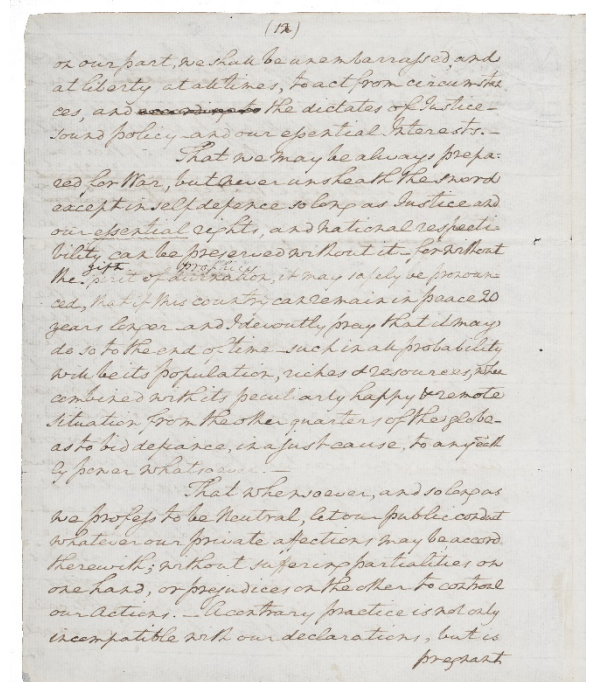 (12)
on our part, we shall be unembarrassed, and
at liberty at all times, to act from circumstan
ces, and according to the dictates of Justice -
sound policy - and our essential Interests. -
That we may be always prepa-
red for War, but never unsheath the sword
except in self defence so long as Justice and
our essential rights, and national respecti-
bility can be preserved without it - for without
gift prophecy
the spirit of divination, it may safely be pronoun-
ced, that if this country can remain in peace 20
years longer - and I devoutly pray that it may
do so to the end of time - such in all probability
will be its population, riches & resources, when
combined with its peculiarly happy & remote
situation from the other quarters of the globe -
as to bid defiance, in a just cause, to any earth
ly power whatsoever. -
That whensoever, and so long as
we profess to be Neutral, let our public conduct
whatever our private affections may be accord
therewith; without suffering partialities on
one hand, or prejudices on the other to control
our Actions. - A contrary practice is not only
incompatible with our declarations, but is
pregnant